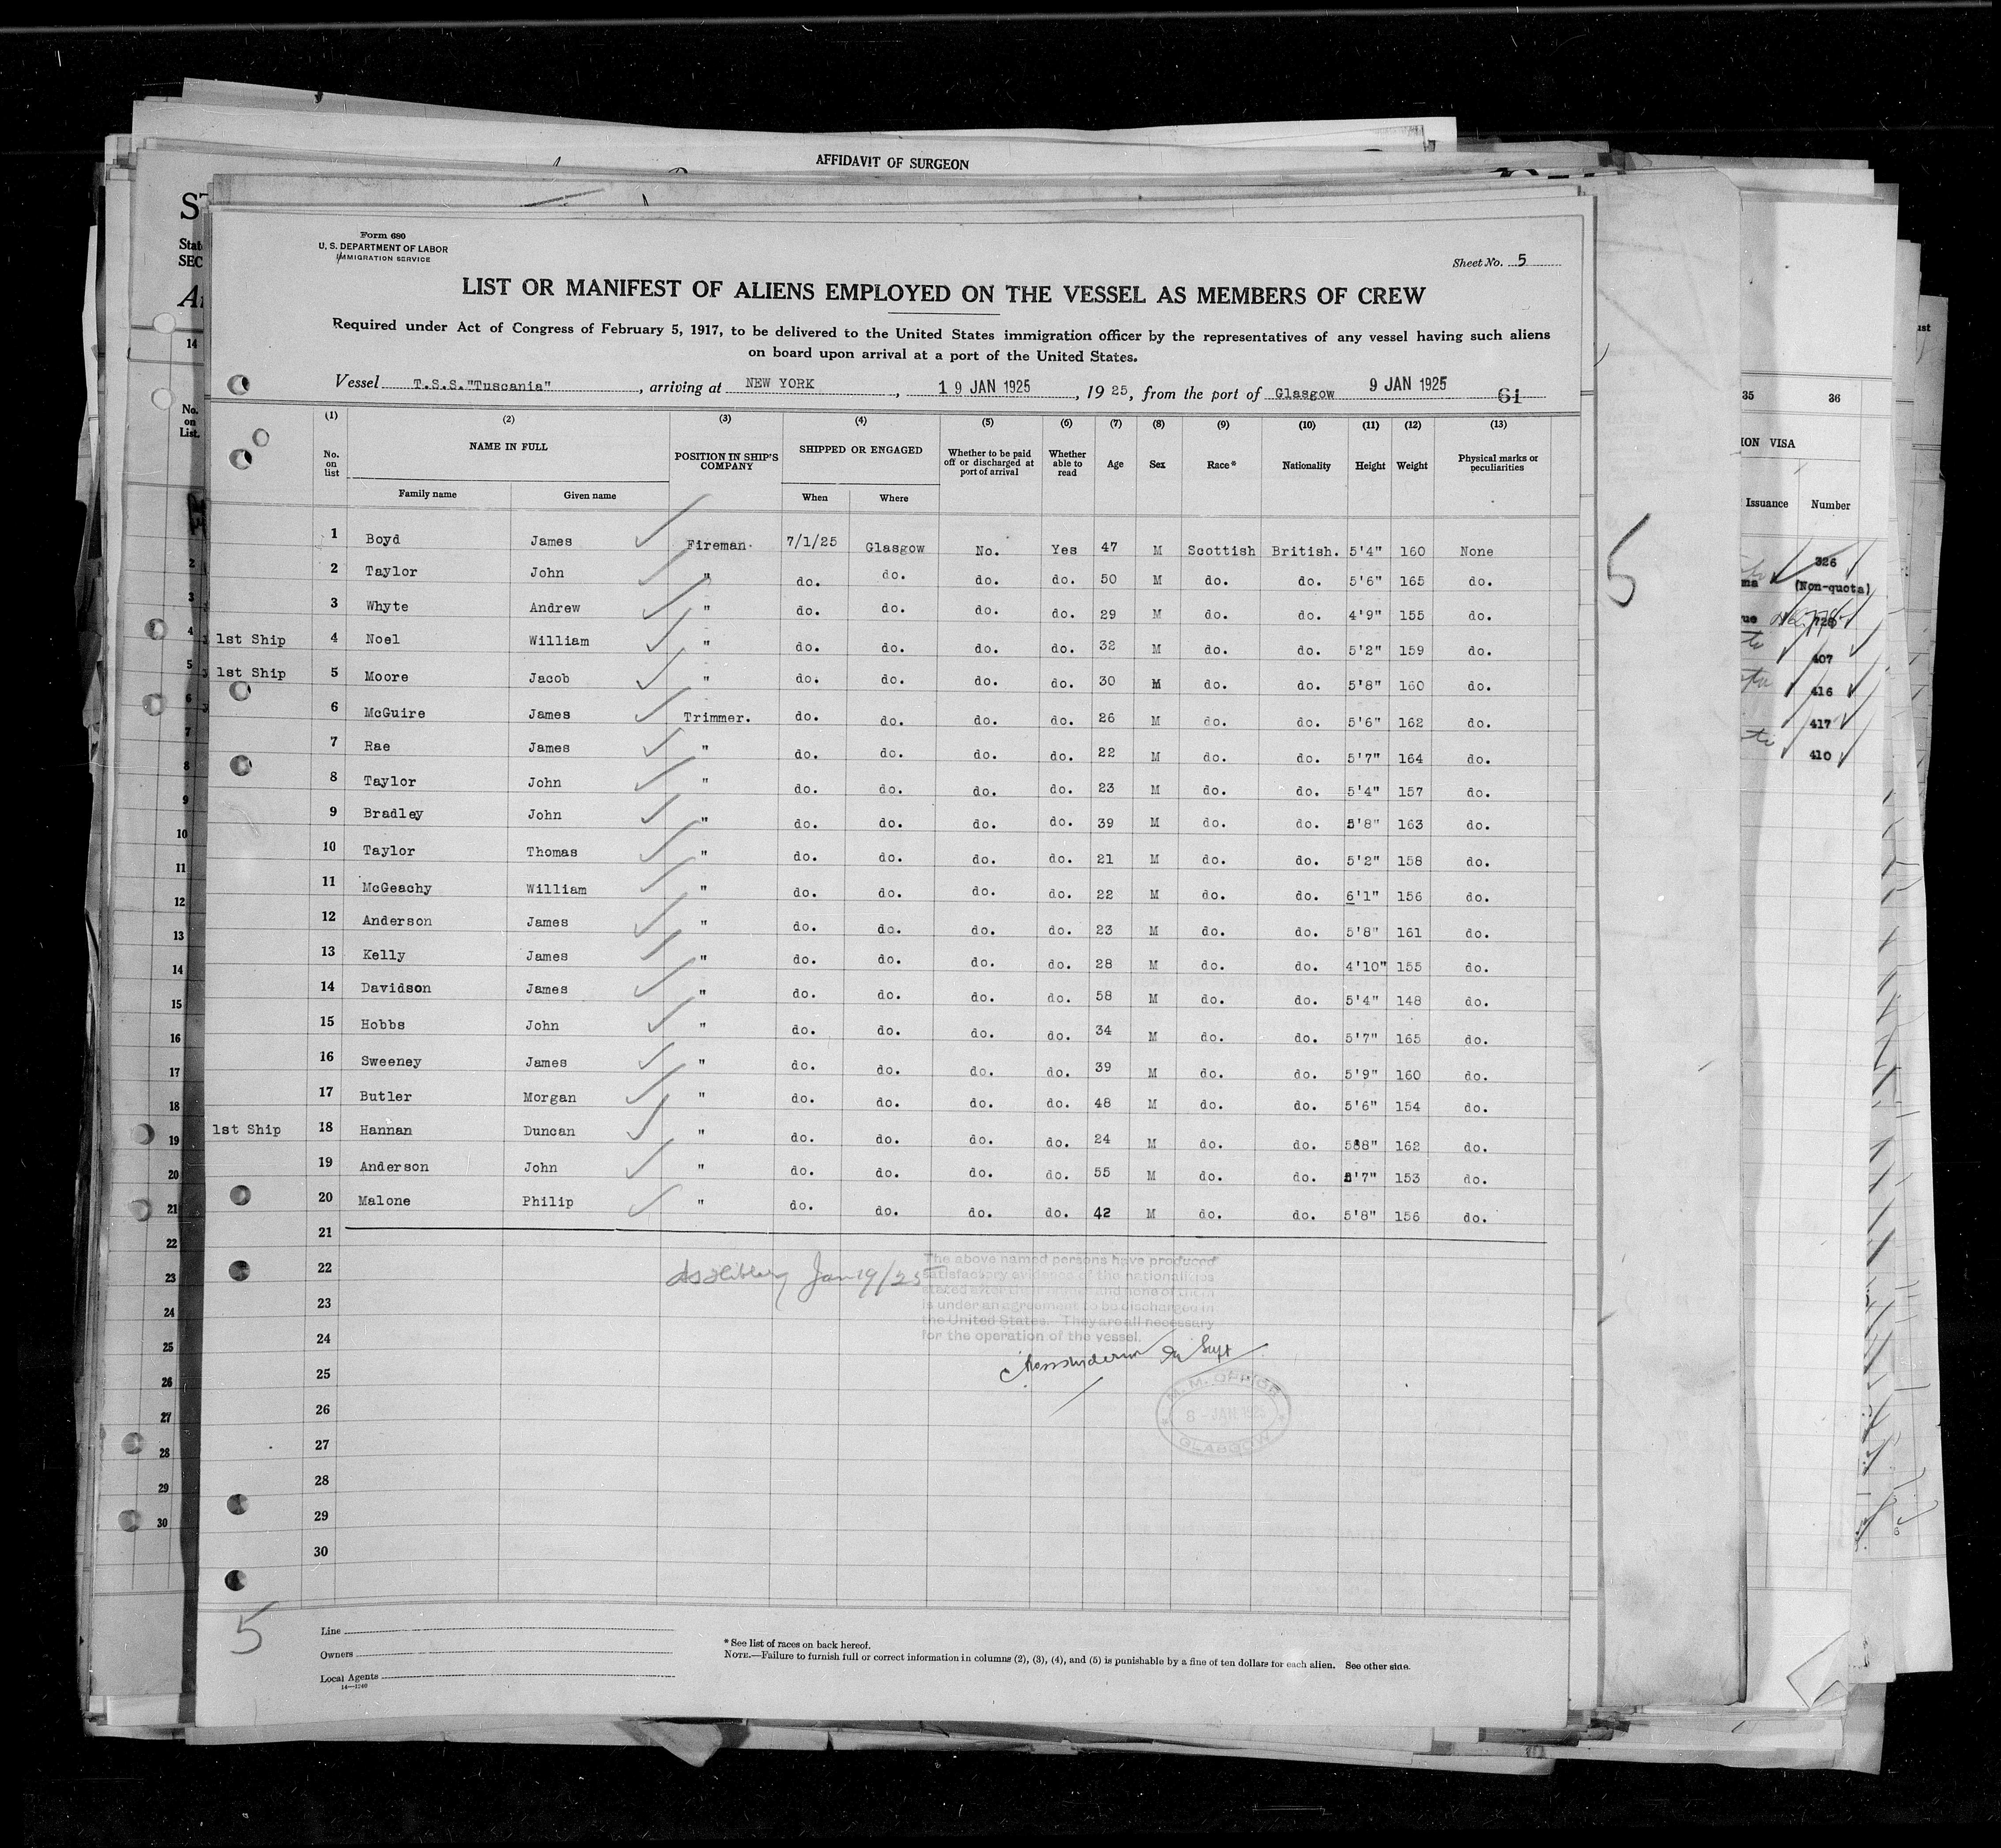 AFFIDAVIT OF SURGEON
Form 680
U. S. DEPARTMENT OF LABOR
IMMIGRATION SERVICE
Sheet No. 5
LIST OR MANIFEST OF ALIENS EMPLOYED ON THE VESSEL AS MEMBERS OF CREW
Required under Act of Congress of February 5, 1917, to be delivered to the United States immigration officer by the representatives of any vessel having such aliens
on board upon arrival at a port of the United States.
Vessel T.S.S."Tuscania", arriving at NEW YORK, 19 JAN 1925, 1925, from the port of Glasgow 9 JAN 1925 61
(1) (2) (3) (4) (5) (6) (7) (8) (9) (10) (11) (12) (13)
No. on list NAME IN FULL Family name Given name POSITION IN SHIP'S COMPANY SHIPPED OR ENGAGED When Where Whether to be paid off or discharged at port of arrival Whether able to read Age Sex Race* Nationality Height Weight Physical marks or peculiarities
1 Boyd James Fireman. 7/1/25 Glasgow No. Yes 47 M Scottish British. 5'4" 160 None
2 Taylor John " do. do. do. do. 50 M do. do. 5'6" 165 do.
3 Whyte Andrew " do. do. do. do. 29 M do. do. 4'9" 155 do.
1st Ship 4 Noel William " do. do. do. do. 32 M do. do. 5'2" 159 do.
1st Ship 5 Moore Jacob " do. do. do. do. 30 M do. do. 5'8" 160 do.
6 McGuire James Trimmer. do. do. do. do. 26 M do. do. 5'6" 162 do.
7 Rae James " do. do. do. do. 22 M do. do. 5'7" 164 do.
8 Taylor John " do. do. do. do. 23 M do. do. 5'4" 157 do.
9 Bradley John " do. do. do. do. 39 M do. do. 5'8" 163 do.
10 Taylor Thomas " do. do. do. do. 21 M do. do. 5'2" 158 do.
11 McGeachy William " do. do. do. do. 22 M do. do. 6'1" 156 do.
12 Anderson James " do. do. do. do. 23 M do. do. 5'8" 161 do.
13 Kelly James " do. do. do. do. 28 M do. do. 4'10" 155 do.
14 Davidson James " do. do. do. do. 58 M do. do. 5'4" 148 do.
15 Hobbs John " do. do. do. do. 34 M do. do. 5'7" 165 do.
16 Sweeney James " do. do. do. do. 39 M do. do. 5'9" 160 do.
17 Butler Morgan " do. do. do. do. 48 M do. do. 5'6" 154 do.
1st Ship 18 Hannan Duncan " do. do. do. do. 24 M do. do. 5'8" 162 do.
19 Anderson John " do. do. do. do. 55 M do. do. 5'7" 153 do.
20 Malone Philip " do. do. do. do. 42 M do. do. 5'8" 156 do.
21
22
23
24
25
26
27
28
29
30
Jan 19/25
The above named persons have produced
satisfactory evidence of the nationalities
stated after their names and none of them
is under an agreement to be discharged in
the United States. They are all necessary
for the operation of the vessel.
Supt
M. M. OFFICE
8 - JAN 1925
GLASGOW
5
Line
Owners
Local Agents
14—1240
* See list of races on back hereof.
NOTE.—Failure to furnish full or correct information in columns (2), (3), (4), and (5) is punishable by a fine of ten dollars for each alien. See other side.
5
35 36
ION VISA
Issuance Number
326
(Non-quota)
407
416
417
410
State
SEC
14
No.
on
List.
2
3
4
5
6
7
8
9
10
11
12
13
14
15
16
17
18
19
20
21
22
23
24
25
26
27
28
29
30